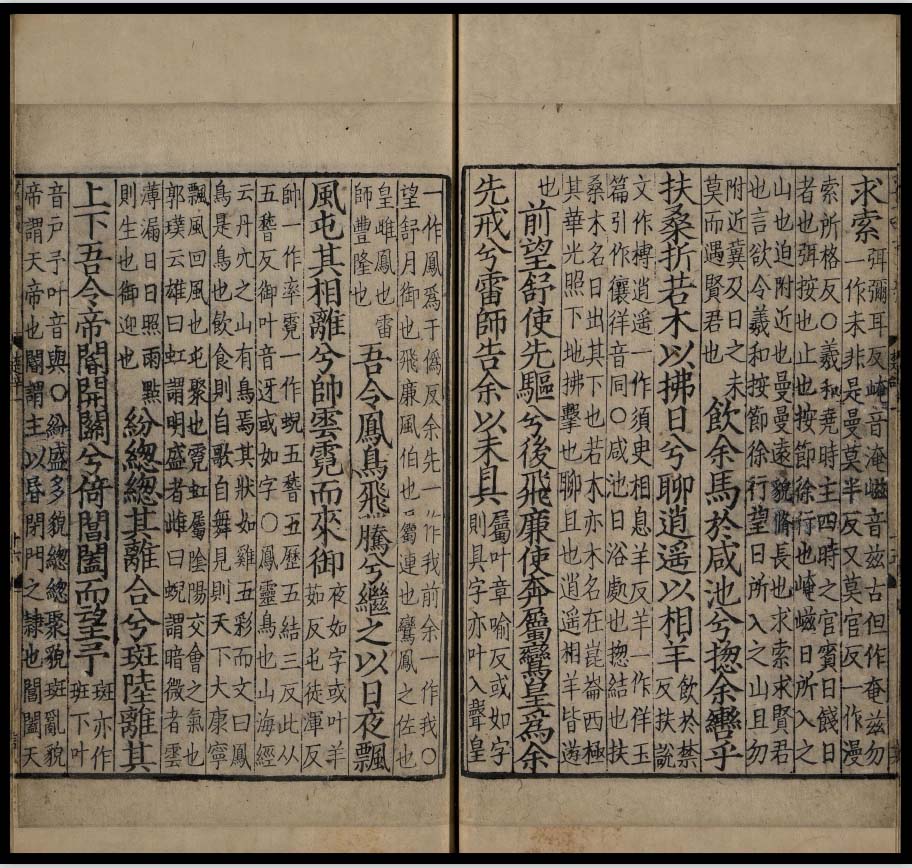 求索
弭彌耳反崦音淹嵫音兹古但作奄兹勿
一作未非是曼莫半反又莫官反一作漫
索所格反○羲和堯時主四時之官賓日餞日
者也弭按也止也按節徐行也崦嵫日所入之
山也迫附近也曼曼遠貌脩長也求索求賢君
也言欲令羲和按節徐行望日所入之山且勿
附近冀及日之未
莫而遇賢君也
飲余馬於咸池兮揔余轡乎
扶桑折若木以拂日兮聊逍遥以相羊
飲於禁
反扶說
文作榑逍遥一作須臾相息羊反羊一作佯玉
篇引作儴徉音同○咸池日浴處也揔結也扶
桑木名日出其下也若木亦木名在崑崙西極
其華光照下地拂擊也聊且也逍遥相羊皆遊
也
前望舒使先驅兮後飛廉使奔屬鸞皇爲余
先戒兮雷師告余以未具
屬叶章喻反或如字
則具字亦叶入聲皇
一作鳳爲于僞反余先一作我前余一作我○
望舒月御也飛廉風伯也屬連也鸞鳳之佐也
皇雌鳳也雷
師豐隆也
吾令鳳鳥飛騰兮繼之以日夜飄
風屯其相離兮帥雲霓而來御
夜如字或叶羊
茹反屯徒渾反
帥一作率霓一作蜺五嵇五歷五結三反此从
五嵇反御叶音迓或如字○鳳靈鳥也山海經
云丹穴之山有鳥焉其狀如雞五彩而文曰鳳
鳥是鳥也飲食則自歌自舞見則天下大康寧
飄風回風也屯聚也霓虹屬陰陽交會之氣也
郭璞云雄曰虹謂明盛者雌曰蜺謂暗微者雲
薄漏日日照雨點
則生也御迎也
紛緫緫其離合兮斑陸離其
上下吾令帝閽開關兮倚閶闔而望予
斑亦作
班下叶
音戸予叶音與○紛盛多貌緫緫聚貌斑亂貌
帝謂天帝也閽謂主以昏閉門之隸也閶闔天